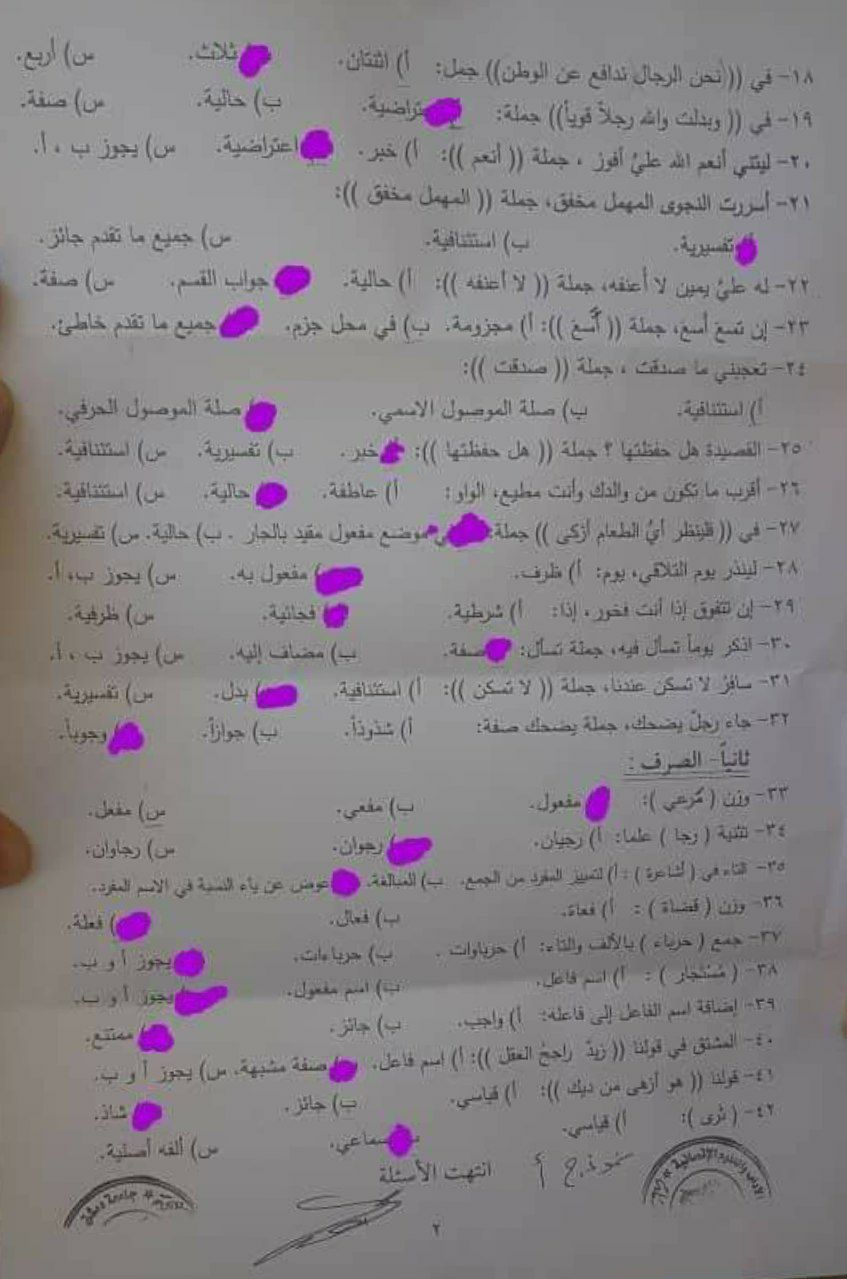 ١٨- في (( نحن الرجال ندافع عن الوطن)) جمل: أ) اثنتان. ثلاث. س) أربع.
١٩- في (( وبدلت والله رجلاً قوياً)) جملة: ب) حالية. س) صفة.
٢٠- ليتني أنعم الله عليّ أفوز ، جملة (( أنعم )): أ) خبر. اعتراضية. س) يجوز ب ، أ.
٢١- أسررت النجوى المهمل مخفق، جملة (( المهمل مخفق )):
تفسيرية. ب) استئنافية. س) جميع ما تقدم جائز.
٢٢- له عليّ يمين لا أعنفه، جملة (( لا أعنفه )): أ) حالية. جواب القسم. س) صفة.
٢٣- إن تسع أسع، جملة (( أسع )): أ) مجزومة. ب) في محل جزم. جميع ما تقدم خاطئ.
٢٤- تعجبني ما صدقت ، جملة (( صدقت )):
أ) استئنافية. ب) صلة الموصول الاسمي. صلة الموصول الحرفي.
٢٥- القصيدة هل حفظتها ؟ جملة (( هل حفظتها )): خبر. ب) تفسيرية. س) استئنافية.
٢٦- أقرب ما تكون من والدك وأنت مطيع، الواو: أ) عاطفة. حالية. س) استئنافية.
٢٧- في (( فلينظر أيُّ الطعام أزكى )) جملة: موضع مفعول مقيد بالجار . ب) حالية. س) تفسيرية.
٢٨- لينذر يوم التلاقي، يوم: أ) ظرف. مفعول به. س) يجوز ب، أ.
٢٩- إن تتفوق إذا أنت فخور، إذا: أ) شرطية. فجائية. س) ظرفية.
٣٠- اذكر يوماً تسأل فيه، جملة تسأل: صفة. ب) مضاف إليه. س) يجوز ب ، أ.
٣١- سافرْ لا تسكن عندنا، جملة (( لا تسكن )): أ) استئنافية. بدل. س) تفسيرية.
٣٢- جاء رجلٌ يضحك، جملة يضحك صفة: أ) شذوذاً. ب) جوازاً. وجوباً.
ثانياً- الصرف :
٣٣- وزن ( مَرعي ): مفعول. ب) مفعي. س) مفعل.
٣٤- تثنية ( رجا ) علما: أ) رجيان. رجوان. س) رجاوان.
٣٥- التاء في ( أشاعرة ) : أ) لتمييز المفرد من الجمع. ب) للمبالغة. عوض عن ياء النسبة في الاسم المفرد.
٣٦- وزن ( قضاة ) : أ) فعاة. ب) فعال. فعلة.
٣٧- جمع ( حرباء ) بالألف والتاء: أ) حرباوات . ب) حرباءات. يجوز أ و ب.
٣٨- ( مُستجار ) : أ) اسم فاعل. ب) اسم مفعول. يجوز أ و ب.
٣٩- إضافة اسم الفاعل إلى فاعله: أ) واجب. ب) جائز. ممتنع.
٤٠- المشتق في قولنا (( زيدٌ راجحُ العقل )): أ) اسم فاعل. صفة مشبهة. س) يجوز أ و ب.
٤١- قولنا (( هو أزهى من ديك )): أ) قياسي. ب) جائز. شاذ.
٤٢- ( ثرى ): أ) قياسي. سماعي. س) ألفه أصلية.
انتهت الأسئلة نموذج أ
٢